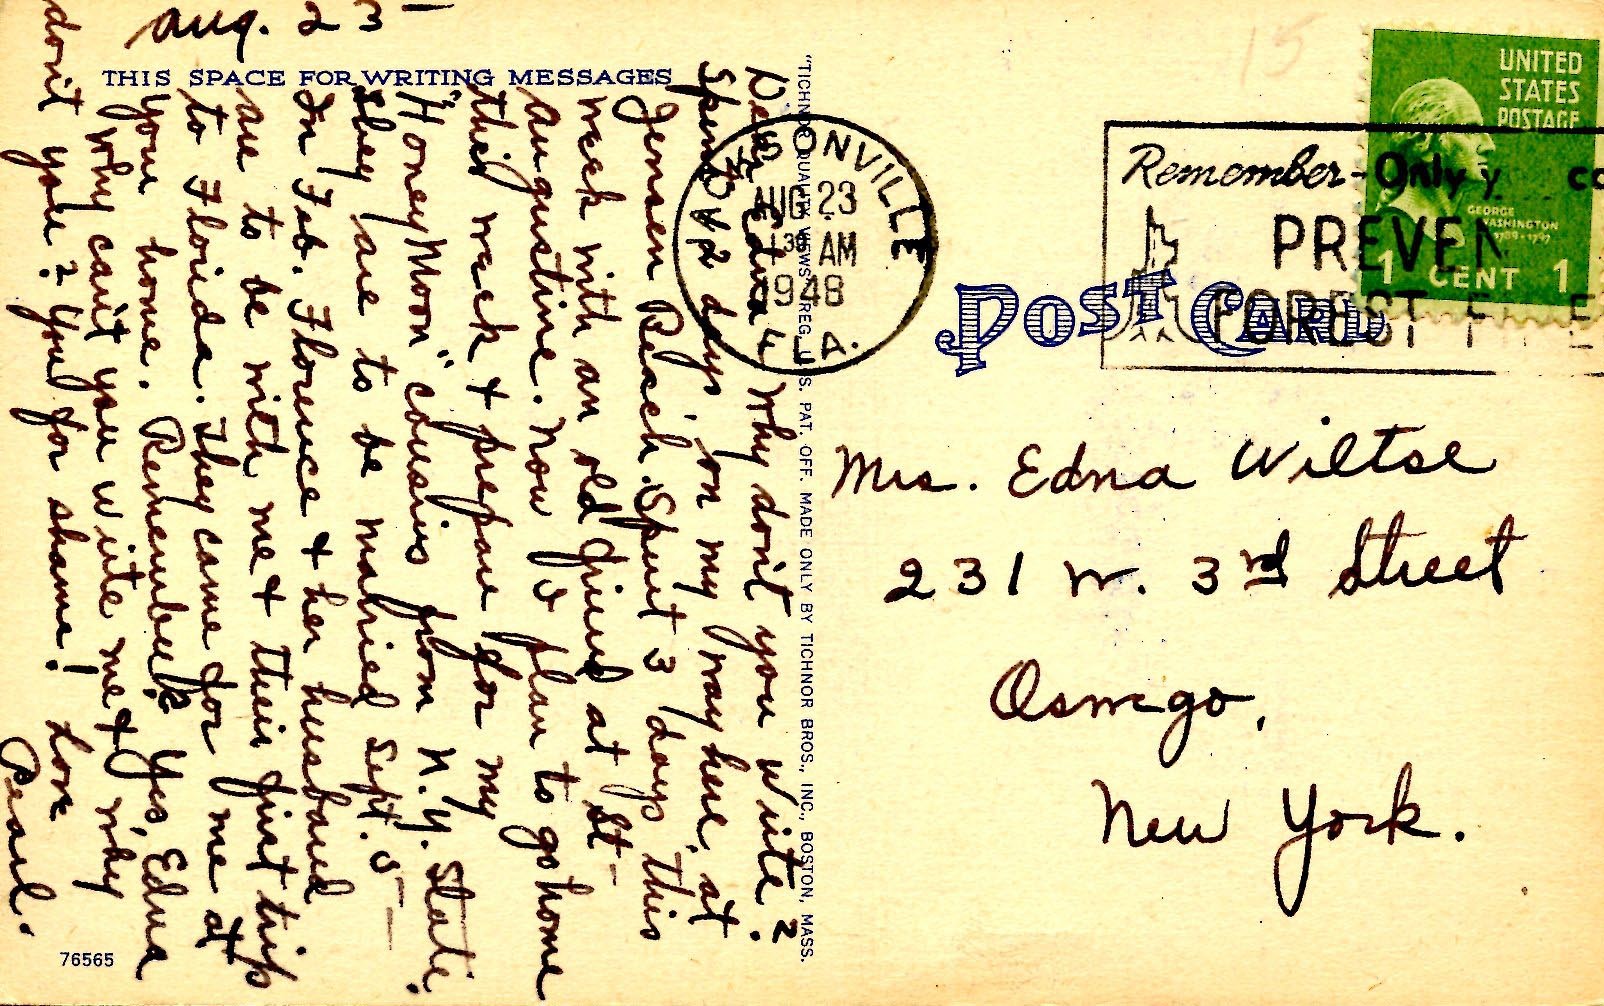 Aug. 23
THIS SPACE FOR WRITING MESSAGES
Dear Edna Why don't you write?
Spent 2 days, on my way here, at
Jensen Beach. Spent 3 days this
week with an old friend at St
Augustine. Now I plan to go home
this week & prepare for my
"Honey Moon" cousins from N.Y. State.
They are to be married Sept. 5
In Feb. Florence & her husband
are to be with me & their first trip
to Florida. They came for me at
your home. Remember? Yes, Edna
why can't you write me & why
don't you? You for shame! Love
Pearl.
76565
"TICHNOR QUALITY VIEWS" REG. U. S. PAT. OFF. MADE ONLY BY TICHNOR BROS., INC., BOSTON, MASS.
SONVILLE
AUG 23
AM
1948
FLA.
15
UNITED
STATES
POSTAGE
GEORGE
WASHINGTON
1789-1797
1 CENT 1
Remember - Only y co
PREVEN
FOREST F E
POST CARD
Mrs. Edna Wiltse
231 W. 3rd Street
Oswego,
New York.